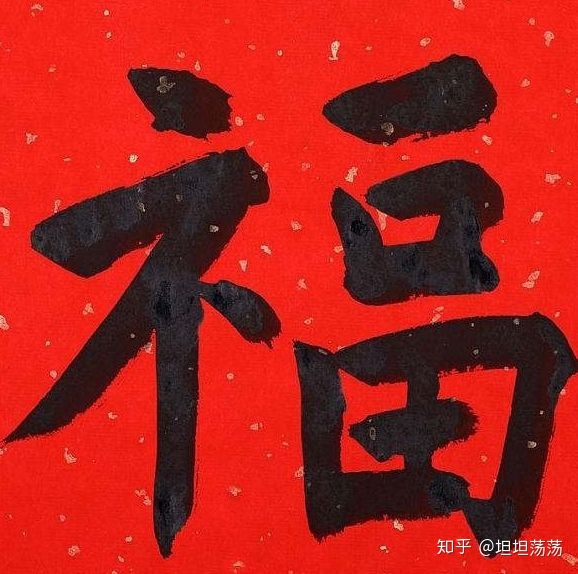 福
知乎 @坦坦荡荡